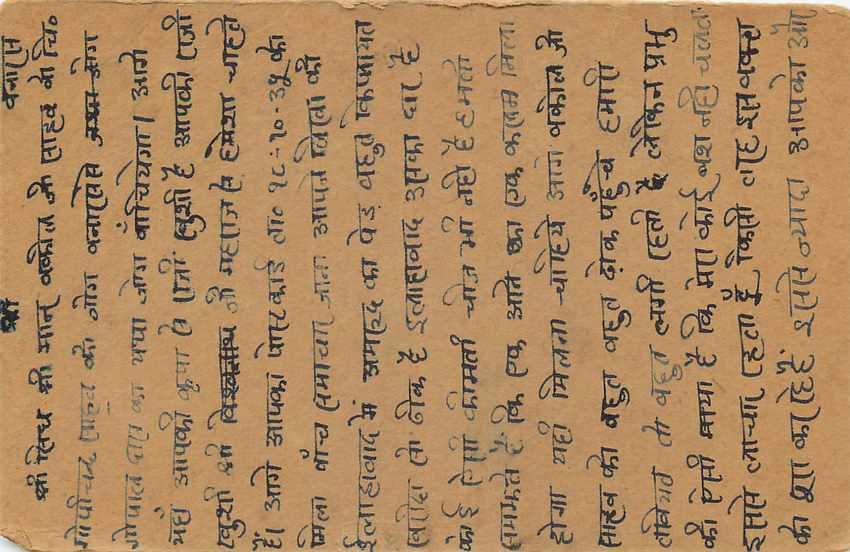 बनारस
श्री सिध श्री मान् वकील जी साहब को चि०
गोपीचन्द साहब को जोग बनारससे
गोपाल दास का यथा जोग बाँचियेगा। आगे
यहां आपकी कृपा से राजी खुशी है आपकी राजी
खुशी श्री विश्वनाथ जी महाराज से हमेशा चाहते
हैं। आगे आपका पोस्टकार्ड ता० १८-१०-३५ का
मिला बाँच समाचार जाना आपने लिखा की
ईलाहाबाद में अमरुद का पेड़ बहुत किफायत
मिला सो ठीक है ईलाहाबाद उसका घर है
कोई ऐसी कीमती चीज भी नहीं है हमतो
समझते हैं कि एक आने का एक कलम मिला
होगा यही मिलना चाहिये आगे वकील जी
साहब को बहुत बहुत ढोक पहुँचे हमारी
तबियत तो बहुत लगी रहती है लेकिन प्रभु
की ऐसी माया है कि मेरा कोई बश नहीं चलता
इससे लाचार रहता हूँ किसी तरह इस वक्त
का पुरा करते हैं इससे ज्यादा आपको और